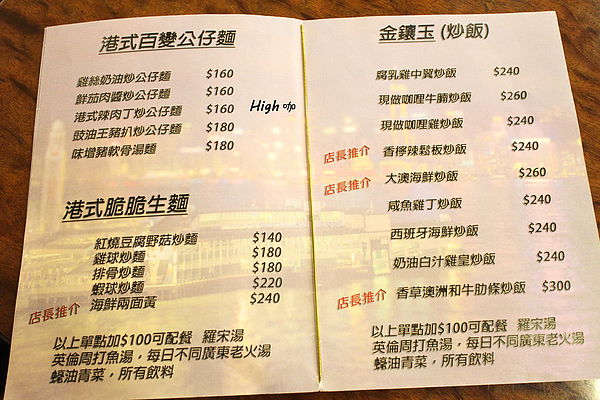 港式百變公仔麵
雞絲奶油炒公仔麵 $160
鮮茄肉醬炒公仔麵 $160
港式辣肉丁炒公仔麵 $160
豉油王豬扒炒公仔麵 $180
味增豬軟骨湯麵 $180
High
港式脆脆生麵
紅燒豆腐野菇炒麵 $140
雞球炒麵 $180
排骨炒麵 $180
蝦球炒麵 $220
店長推介 海鮮兩面黃 $240
以上單點加$100可配餐 羅宋湯
英倫周打魚湯，每日不同廣東老火湯
蠔油青菜，所有飲料
金鑲玉 (炒飯)
腐乳雞中翼炒飯 $240
現做咖哩牛腩炒飯 $260
現做咖哩雞炒飯 $240
店長推介 香檸辣鬆板炒飯 $240
店長推介 大澳海鮮炒飯 $260
咸魚雞丁炒飯 $240
西班牙海鮮炒飯 $240
奶油白汁雞皇炒飯 $240
店長推介 香草澳洲和牛肋條炒飯 $300
以上單點加$100可配餐 羅宋湯
英倫周打魚湯，每日不同廣東老火湯
蠔油青菜，所有飲料